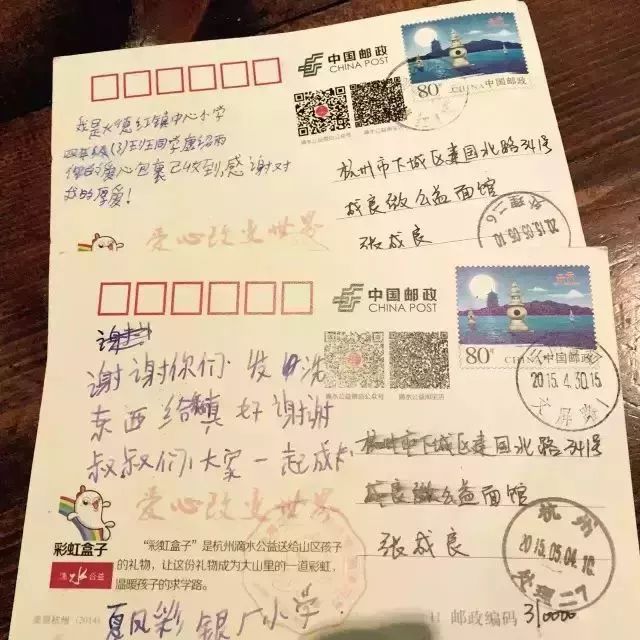 中国邮政
CHINA POST
80分
CHINA 中国邮政
我是大德红镇中心小学
四年级(3)班王同学
你的爱心包裹已收到,感谢对
我的厚爱!
杭州市下城区建国北路341号
成良微公益面馆
张成良
2015.05.05.10
爱心改变世界
中国邮政
CHINA POST
80分
CHINA 中国邮政
滴水公益微信公众号
滴水公益淘宝店
谢谢你们 发
东西给 好谢谢
叔叔们大家一起成
2015.4.30.15
杭州市下城区建国北路341号
成良微公益面馆
张成良
爱心改变世界
彩虹盒子
滴水公益
“彩虹盒子”是杭州滴水公益送给山区孩子
的礼物,让这份礼物成为大山里的一道彩虹,
温暖孩子的求学路。
杭州
2015.05.04.16
美丽杭州(2014)
夏风彩 银广小学
邮政编码 310000